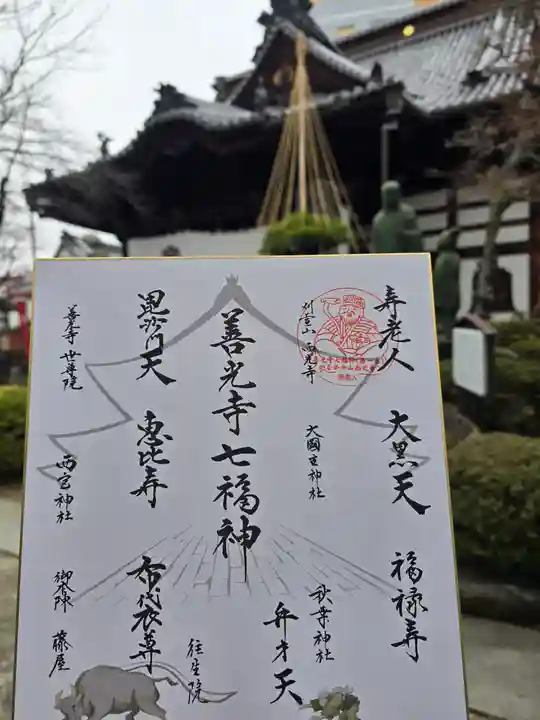 寿老人
刈萱山 西光寺
大黒天
大國主神社
福禄寿
秋葉神社
弁才天
往生院
善光寺七福神
毘沙門天
善光寺 世尊院
恵比寿
西宮神社
布袋尊
御本陳 藤屋